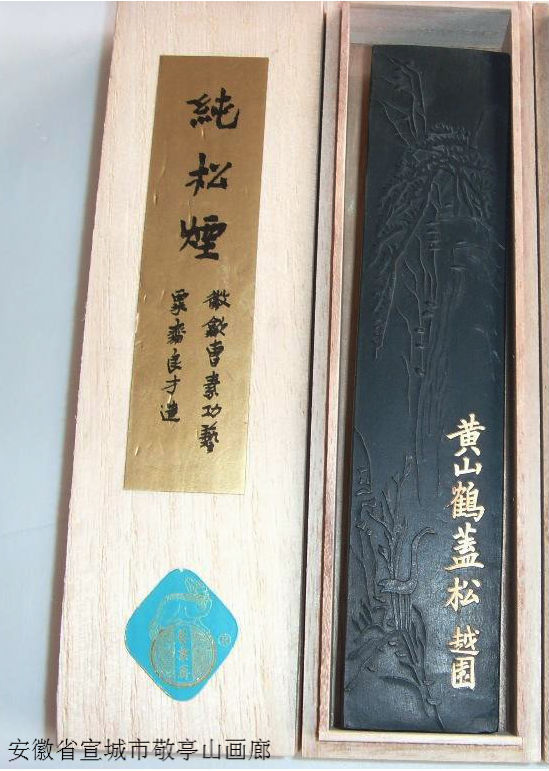 純松煙
徽歙曹素功藝
粟齋良才造
黄山鶴蓋松 越園
安徽省宣城市敬亭山画廊